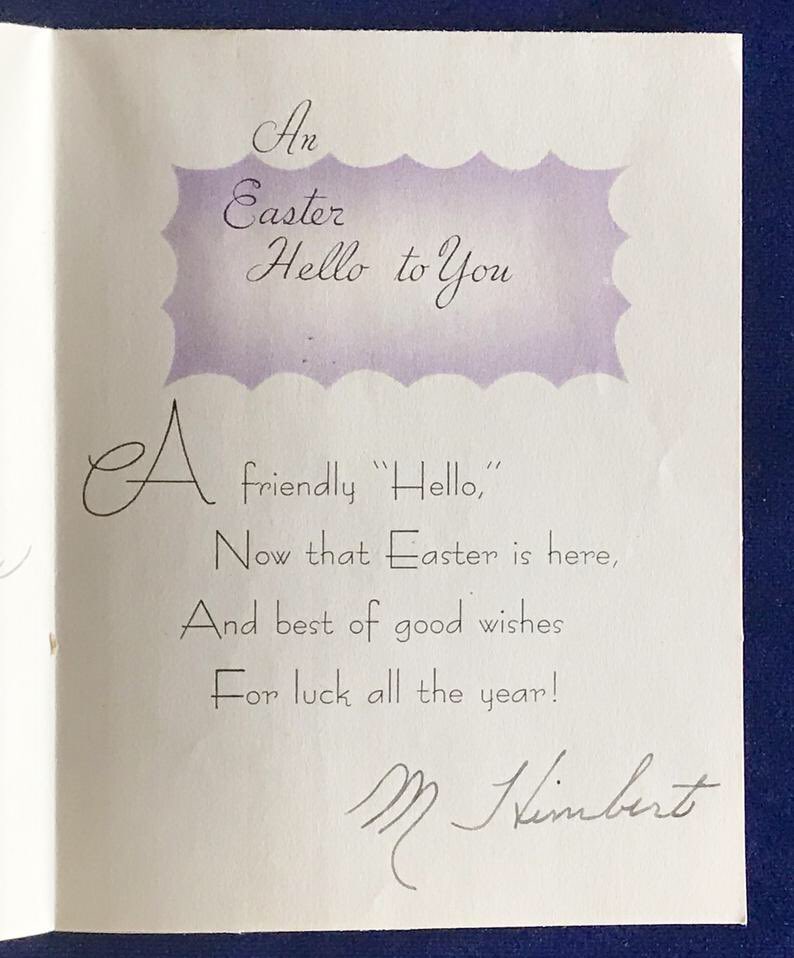 An
Easter
Hello to You
A friendly “Hello,”
Now that Easter is here,
And best of good wishes
For luck all the year!
M Himbert